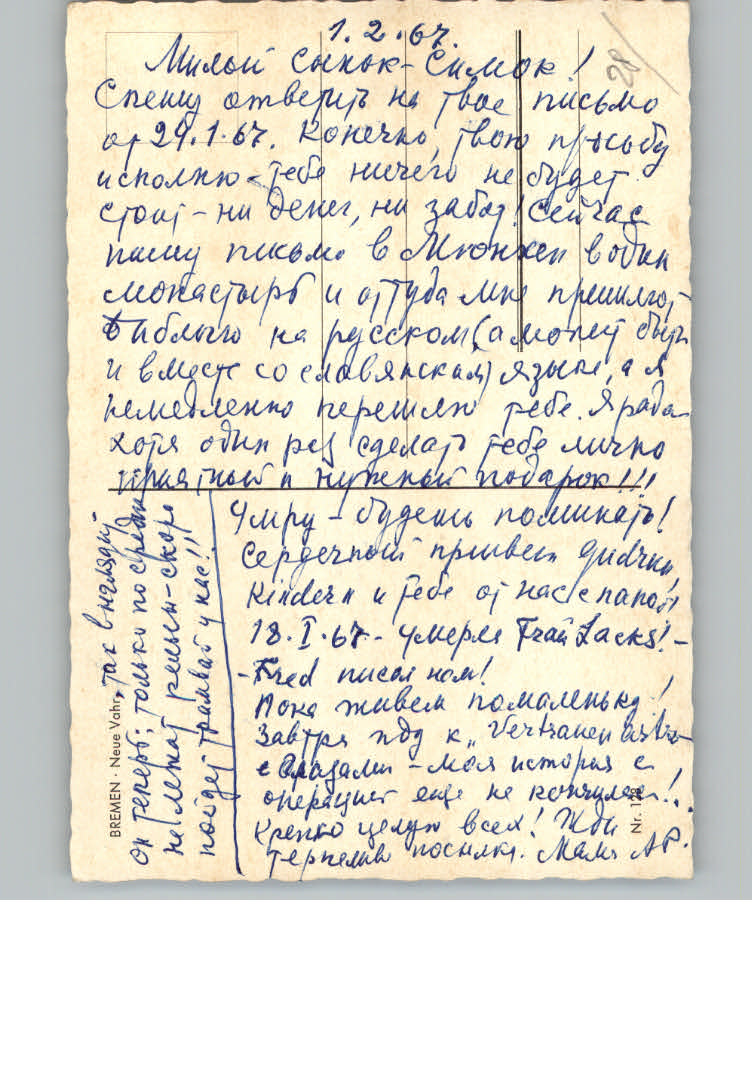 1.2.67.
28
Милой сынок-Симок!
Спешу ответить на твое письмо
от 29.1.67. Конечно, твою просьбу
исполню - тебе ничего не будет
стоит - ни денег, ни забот! Сейчас
пишу письмо в Мюнхен в один
монастырь и оттуда мне пришлют
Библию на русском (а может быть
и вместе со славянским) языке, а я
немедленно перешлю тебе. Я рада
хотя один раз сделать тебе лично
приятный и нужный подарок!!!
Умру - будешь поминать!
Сердечный привет
Kindern и тебе от нас с папой
18.I.67 - умерла Frau Lacks! -
- Fred писал нам!
Пока живем помаленьку!
Завтра иду к „Vertrauen
с глазами - моя история с
операцией еще не кончилась!..
Крепко целую всех! Жди
терпеливо посылки. Мама АР.
BREMEN · Neue Vahr, так выглядит
он теперь, только по средине
на лежат рельсы - скоро
пойдет трамвай у нас!!!
Nr. 128